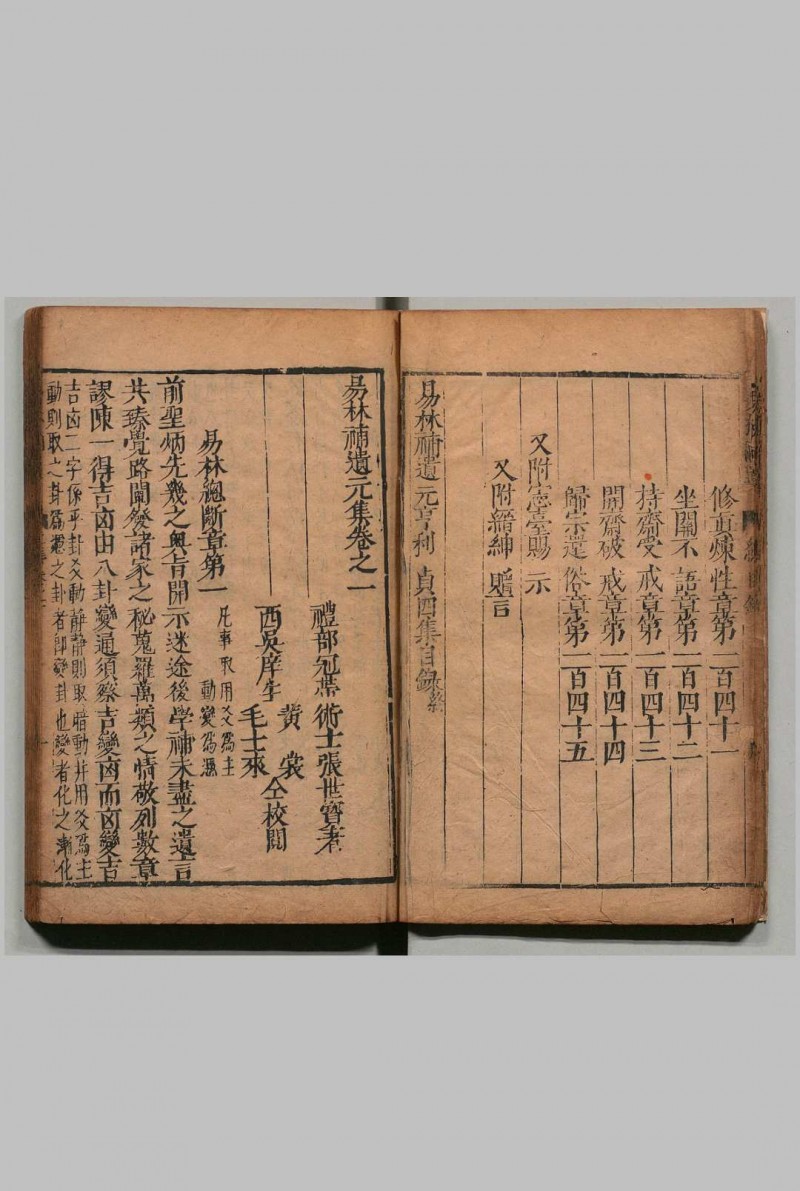 修真煉性章第一百四十一
坐關不語章第一百四十二
持齋受戒章第一百四十三
開齋破戒章第一百四十四
歸宗還俗章第一百四十五
又附憲臺賜示
又附縉紳贈言
易林補遺元亨利貞四集目錄終
易林補遺元集卷之一
禮部冠帶術士張世寶著
西吳庠生 黃裳
毛士來 仝校閱
易林總斷章第一 凡事取用爻爲主
動變爲源
前聖炳先幾之奧㫖開示迷途後學補未盡之遺言
共臻覺路闡發諸家之秘蒐羅萬類之情敬列數章
謬陳一得吉凶由八卦變通須察吉變凶而凶變吉
吉凶二字係乎卦爻動靜靜則取暗動并用爻爲主
動則取之卦爲
之卦者即變卦也變者化之漸化